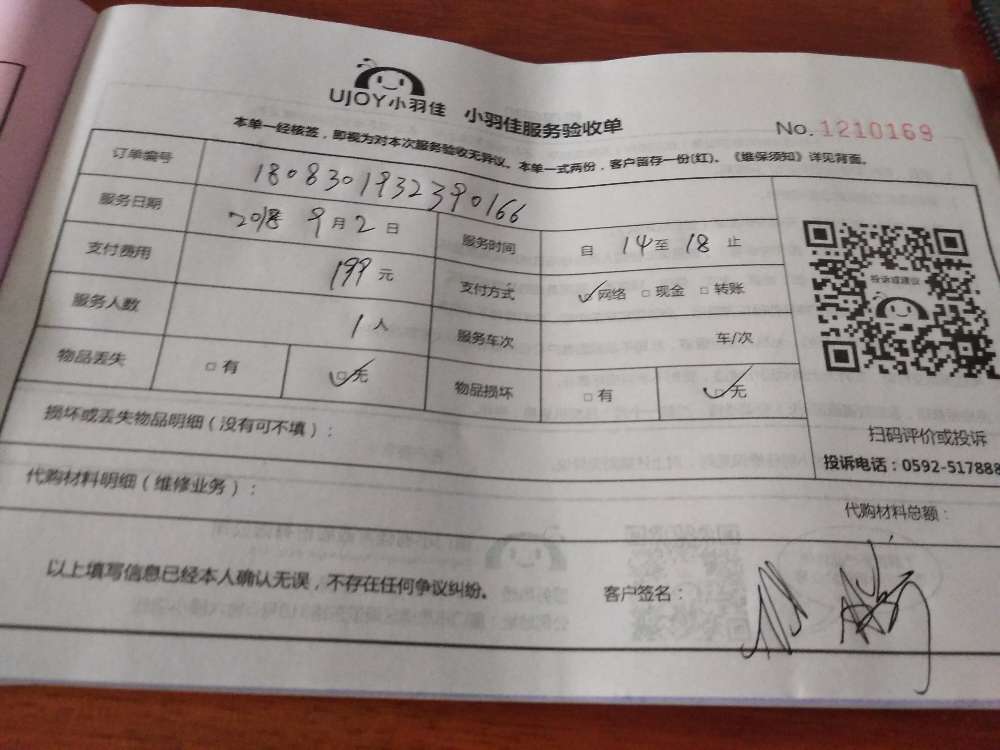 UJOY小羽佳 小羽佳服务验收单
No. 1210169
本单一经核签，即视为对本次服务验收无异议。本单一式两份，客户留存一份(红)。《维保须知》详见背面。
订单编号 1808301932390166
服务日期 2018年 9月2日 服务时间 自 14至 18 止
支付费用 199元 支付方式 网络 现金 转账
服务人数 1人 服务车次 车/次
物品丢失 有 无 物品损坏 有 无
投诉或建议
扫码评价或投诉
投诉电话：0592-517888
损坏或丢失物品明细（没有可不填）：
代购材料明细（维修业务）：
代购材料总额：
以上填写信息已经本人确认无误，不存在任何争议纠纷。
客户签名：